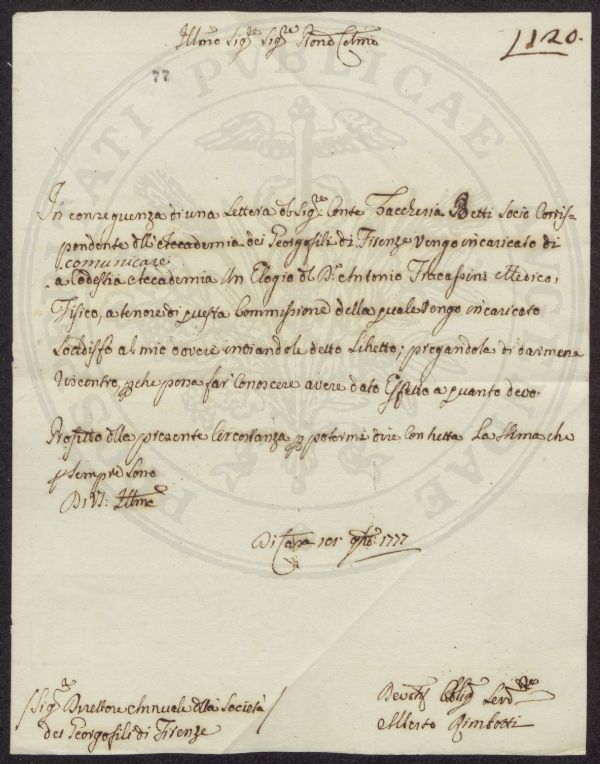 Illmo Sigre Sigre Prone Colmo
1120.
77
In conseguenza di una Lettera del Sigre Conte Zaccheria Betti Socio Corris=
pondente dell'Accademia dei Georgofili di Firenze Vengo incaricato di
comunicare
a Codestia Accademia Un Elogio del Dr. Antonio Fracassini Medico,
Fisico, a tenore di questa Commissione della quale Vengo incaricato
Soddisfo al mio dovere inviandole detto Libretto; pregandola di darmene
riscontro, pche possa far Conoscere avere dato Effetto a quanto devo.
Profitto della presente Circostanza p potermi dire Con tutta La Stima che
p Sempre Sono
Di VS. Illma
Di Casa 9bre 1777
Sigre Direttore Annuale della Società
dei Georgofili di Firenze
Devotmo Obligmo Servre
Alberto Rimbotti
PUBLICAE